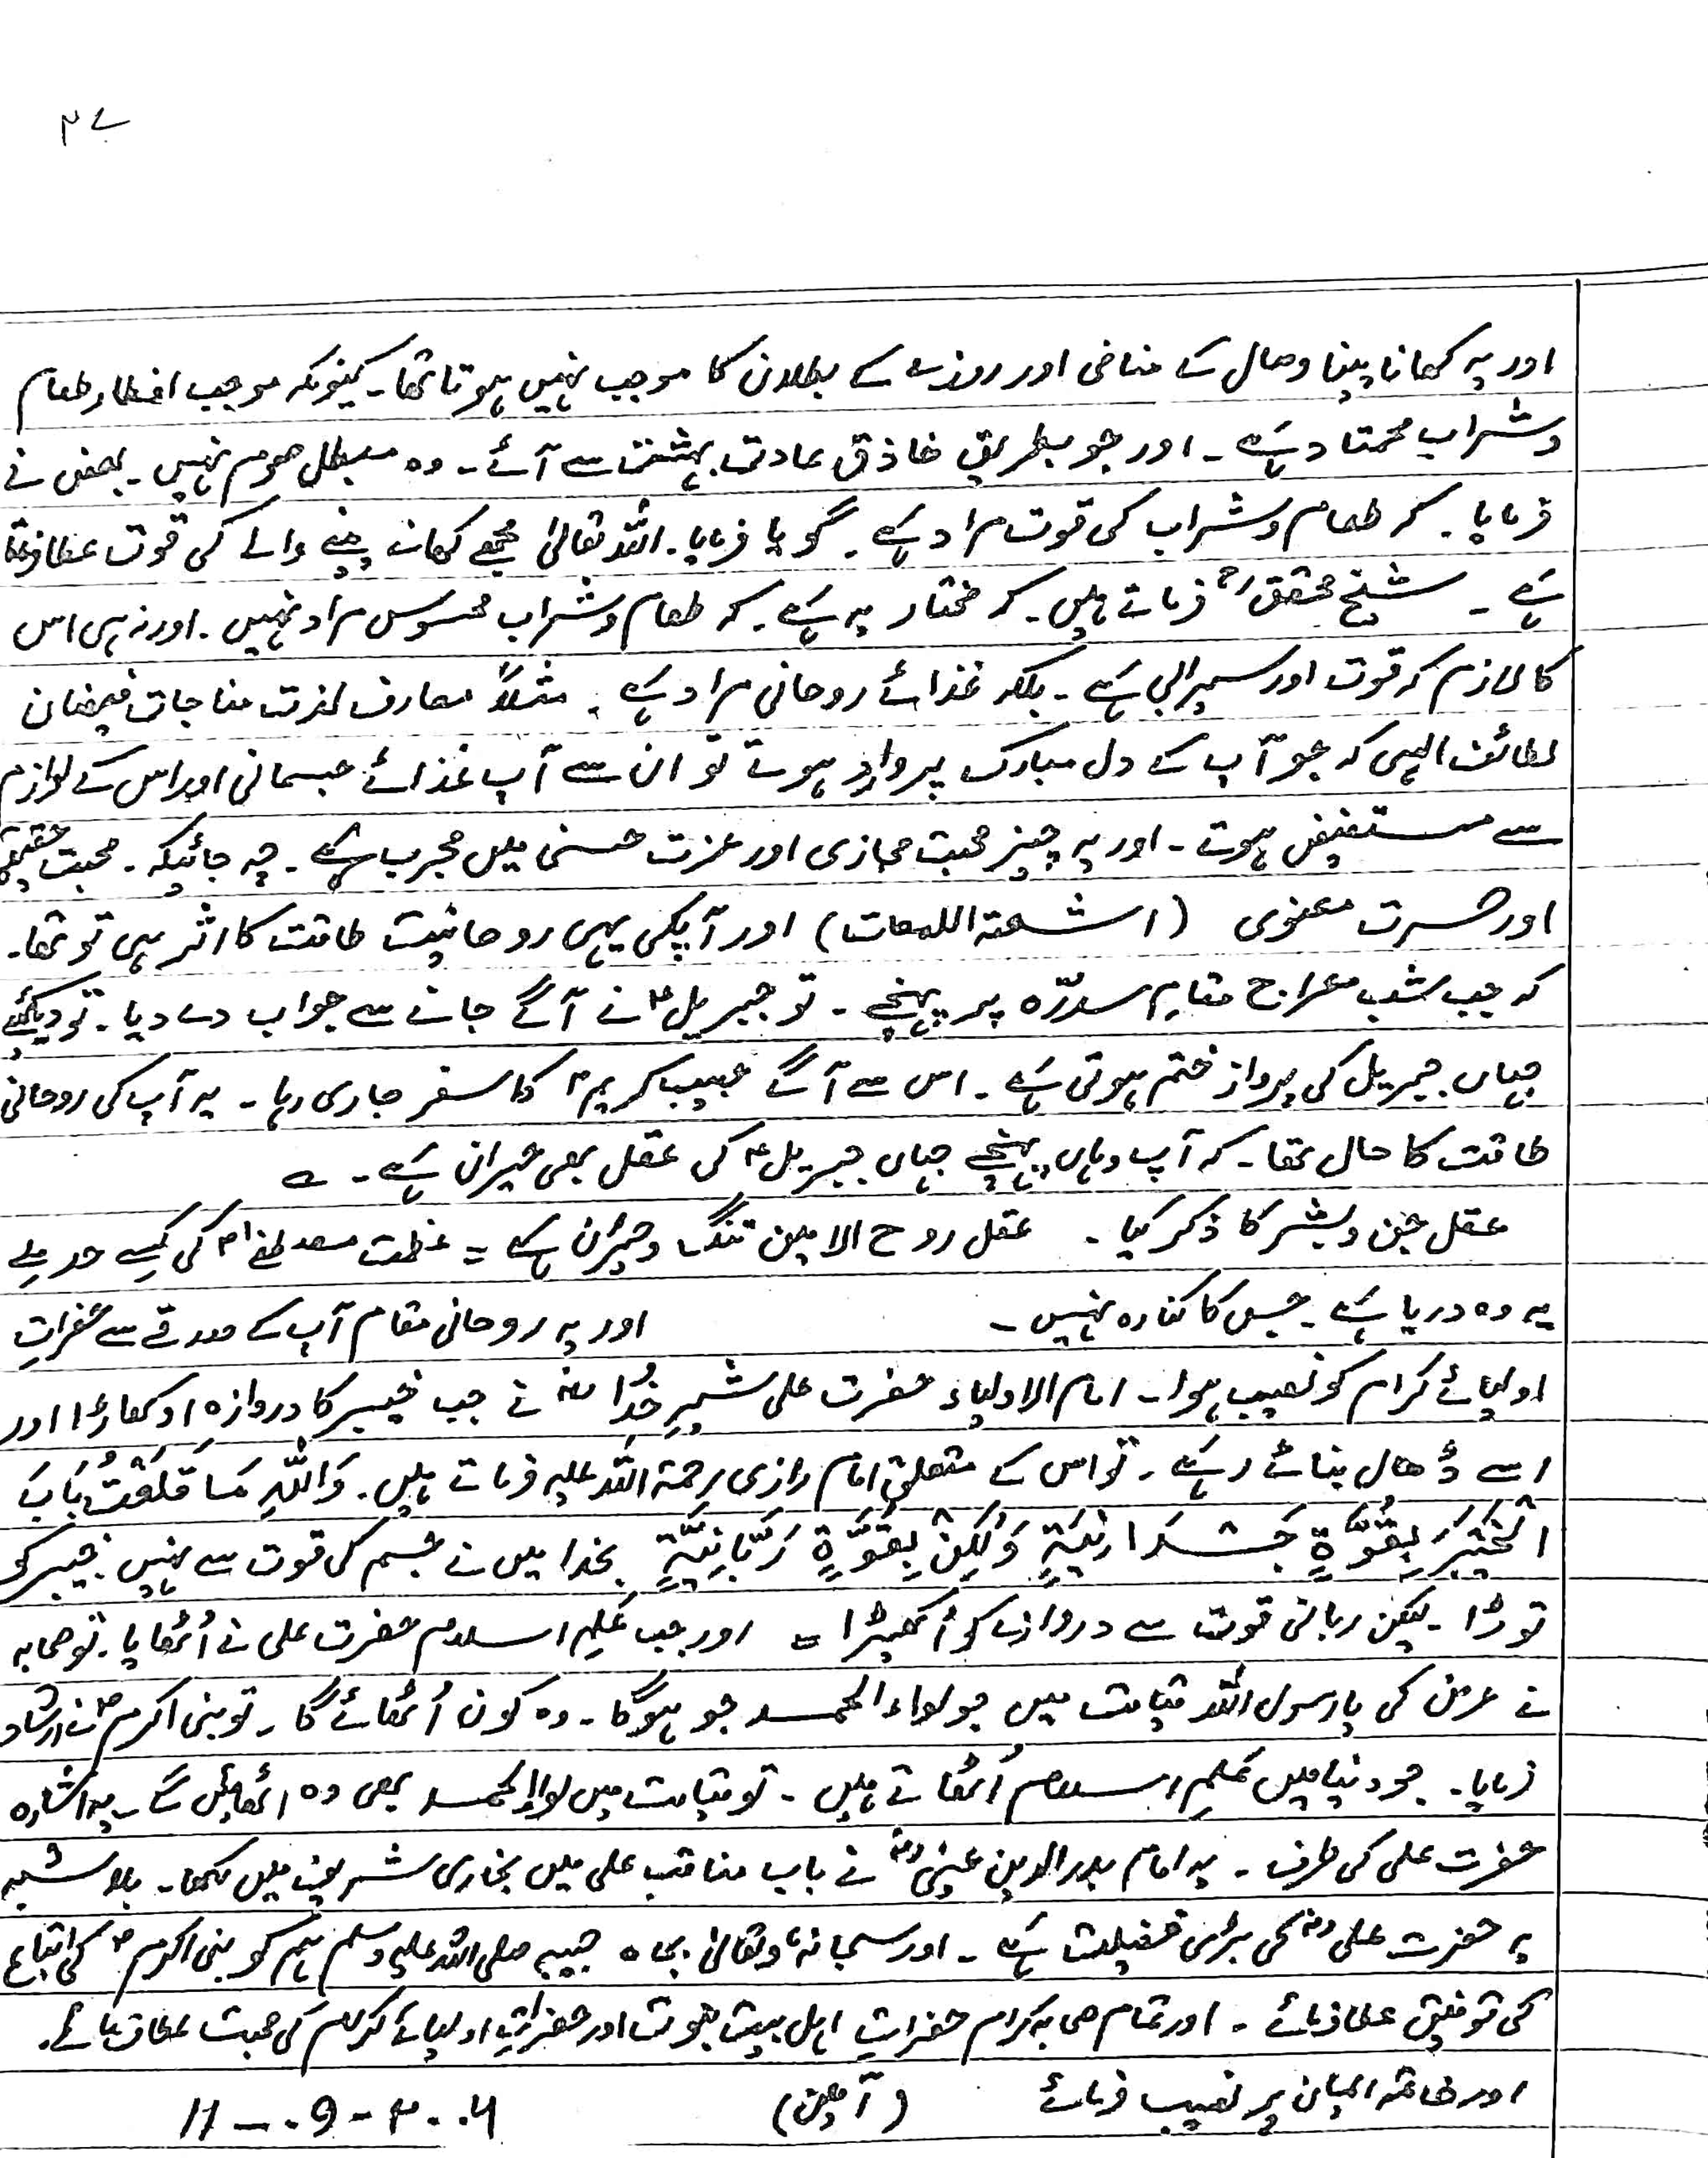 ۳۷
اور یہ کھانا پینا وصال کے منافی اور روزے کے بطلان کا موجب نہیں ہوتا تھا۔ کیونکہ موجب افطار طعام
وشراب معتاد ہے۔ اور جو بطریق خاذق عادت بہشت سے آئے۔ وہ مبطل صوم نہیں۔ بعض نے
فرمایا۔ کہ طعام وشراب کی قوت مراد ہے۔ گویا فرمایا۔ اللہ تعالیٰ مجھے کھانے پینے والے کی قوت عطا فرماتا
ہے۔ شیخ محققؒ فرماتے ہیں۔ کہ مختار یہ ہے۔ کہ طعام وشراب محسوس مراد نہیں۔ اور نہ ہی اس
کا لازم کہ قوت اور سیرابی ہے۔ بلکہ غذائے روحانی مراد ہے۔ مثلاً معارف لذت مناجات فیضان
لطائف الہی کہ جو آپ کے دل مبارک پر وارد ہوتے تو ان سے آپ غذائے جسمانی اور اس کے لوازم
سے مستفیض ہوتے۔ اور یہ چیز محبت مجازی اور عزت حسی میں مجرب ہے۔ چہ جائیکہ۔ محبت حقیقی
اور مسرت معنوی (اشعۃ اللمعات) اور آپکی یہی روحانیت طاقت کا اثر ہی تو تھا۔
کہ جب شب معراج مقام سدرہ پر پہنچے۔ تو جبریلؑ نے آگے جانے سے جواب دے دیا۔ تو دیکھئے
جہاں جبریل کی پرواز ختم ہوتی ہے۔ اس سے آگے حبیب کریمؐ کا سفر جاری رہا۔ یہ آپ کی روحانی
طاقت کا حال تھا۔ کہ آپ وہاں پہنچے جہاں جبریلؑ کی عقل بھی حیران ہے۔ ؎
عقل جن وبشر کا ذکر کیا۔ عقل روح الامین تنگ وحیران ہے = عظمت مصطفےٰؐ کی کیسے حد ملے
یہ وہ دریا ہے۔ جس کا کنارہ نہیں۔ اور یہ روحانی مقام آپ کے صدقے سے حضراتِ
اولیائے کرام کو نصیب ہوا۔ امام الاولیاء حضرت علی شیرِ خُداؓ نے جب خیبر کا دروازہ اوکھاڑا اور
اسے ڈھال بنائے رہے۔ تو اس کے متعلق امام رازی رحمۃ اللہ علیہ فرماتے ہیں۔ وَاللہِ مَا قَلَعْتُ بَابَ
الْخَیْبَرَ بِقُوَّةٍ جَسْدَانِیَّةٍ وَلٰکِنْ بِقُوَّةٍ رَبَّانِیَّةٍ بخدا میں نے جسم کی قوت سے نہیں خیبر کو
توڑا۔ لیکن ربانی قوت سے دروازے کو اُکھیڑا = اور جب عَلمِ اسلام حضرت علی نے اُٹھایا۔ تو صحابہ
نے عرض کی یا رسول اللہ قیامت میں جو لواء الحمد جو ہوگا۔ وہ کون اُٹھائے گا۔ تو نبی اکرمؐ نے ارشاد
فرمایا۔ جو دنیا میں عَلمِ اسلام اُٹھاتے ہیں۔ تو قیامت میں لواالحمد بھی وہ اٹھائیں گے۔ یہ اشارہ
حضرت علی کی طرف۔ یہ امام بدرالدین عینیؒ نے باب مناقب علی میں بخاری شریف میں لکھا۔ بلا شبہ
یہ حضرت علیؓ کی بڑی فضیلت ہے۔ اور سبحانہٗ وتعالیٰ بجاہ حبیبہ صلی اللہ علیہ وسلم ہم کو نبی اکرمؐ کی اتباع
کی توفیق عطا فرمائے۔ اور تمام صحابہ کرام حضراتِ اہل بیت نبوت اور حضراتِ اولیائے کرام کی محبت عطا فرمائے۔
اور خاتمہ ایمان پر نصیب فرمائے (آمین) 11-09-2004